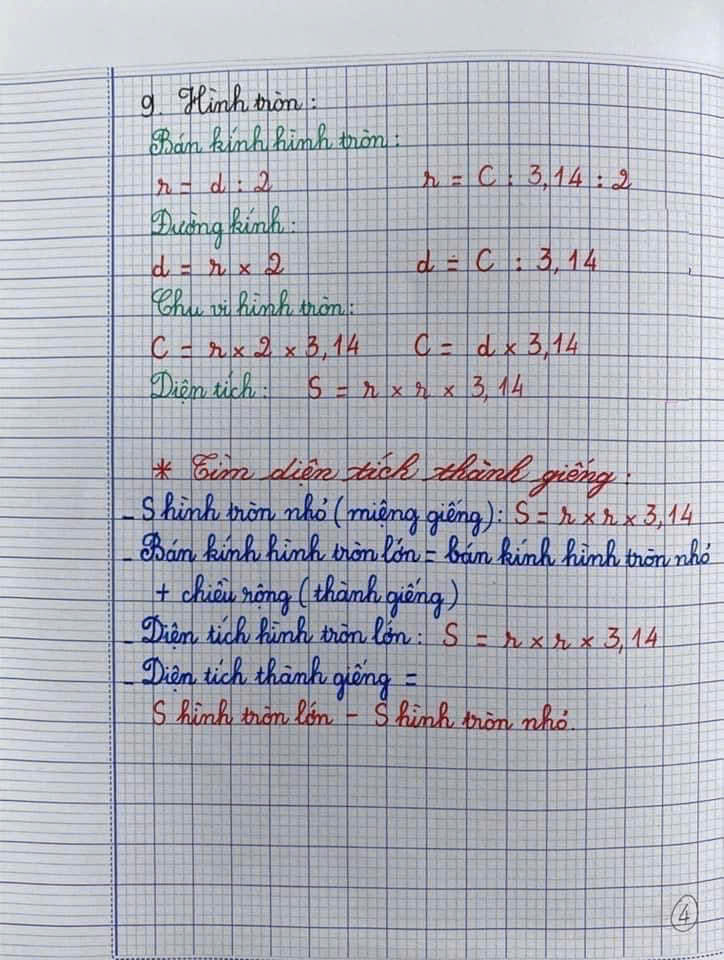 9. Hình tròn:
Bán kính hình tròn:
r = d : 2 r = C : 3,14 : 2
Đường kính:
d = r × 2 d = C : 3,14
Chu vi hình tròn:
C = r × 2 × 3,14 C = d × 3,14
Diện tích: S = r × r × 3,14
* Tìm diện tích thành giếng:
- S hình tròn nhỏ (miệng giếng): S = r × r × 3,14
- Bán kính hình tròn lớn = bán kính hình tròn nhỏ
+ chiều rộng (thành giếng)
- Diện tích hình tròn lớn: S = r × r × 3,14
- Diện tích thành giếng =
S hình tròn lớn - S hình tròn nhỏ.
4